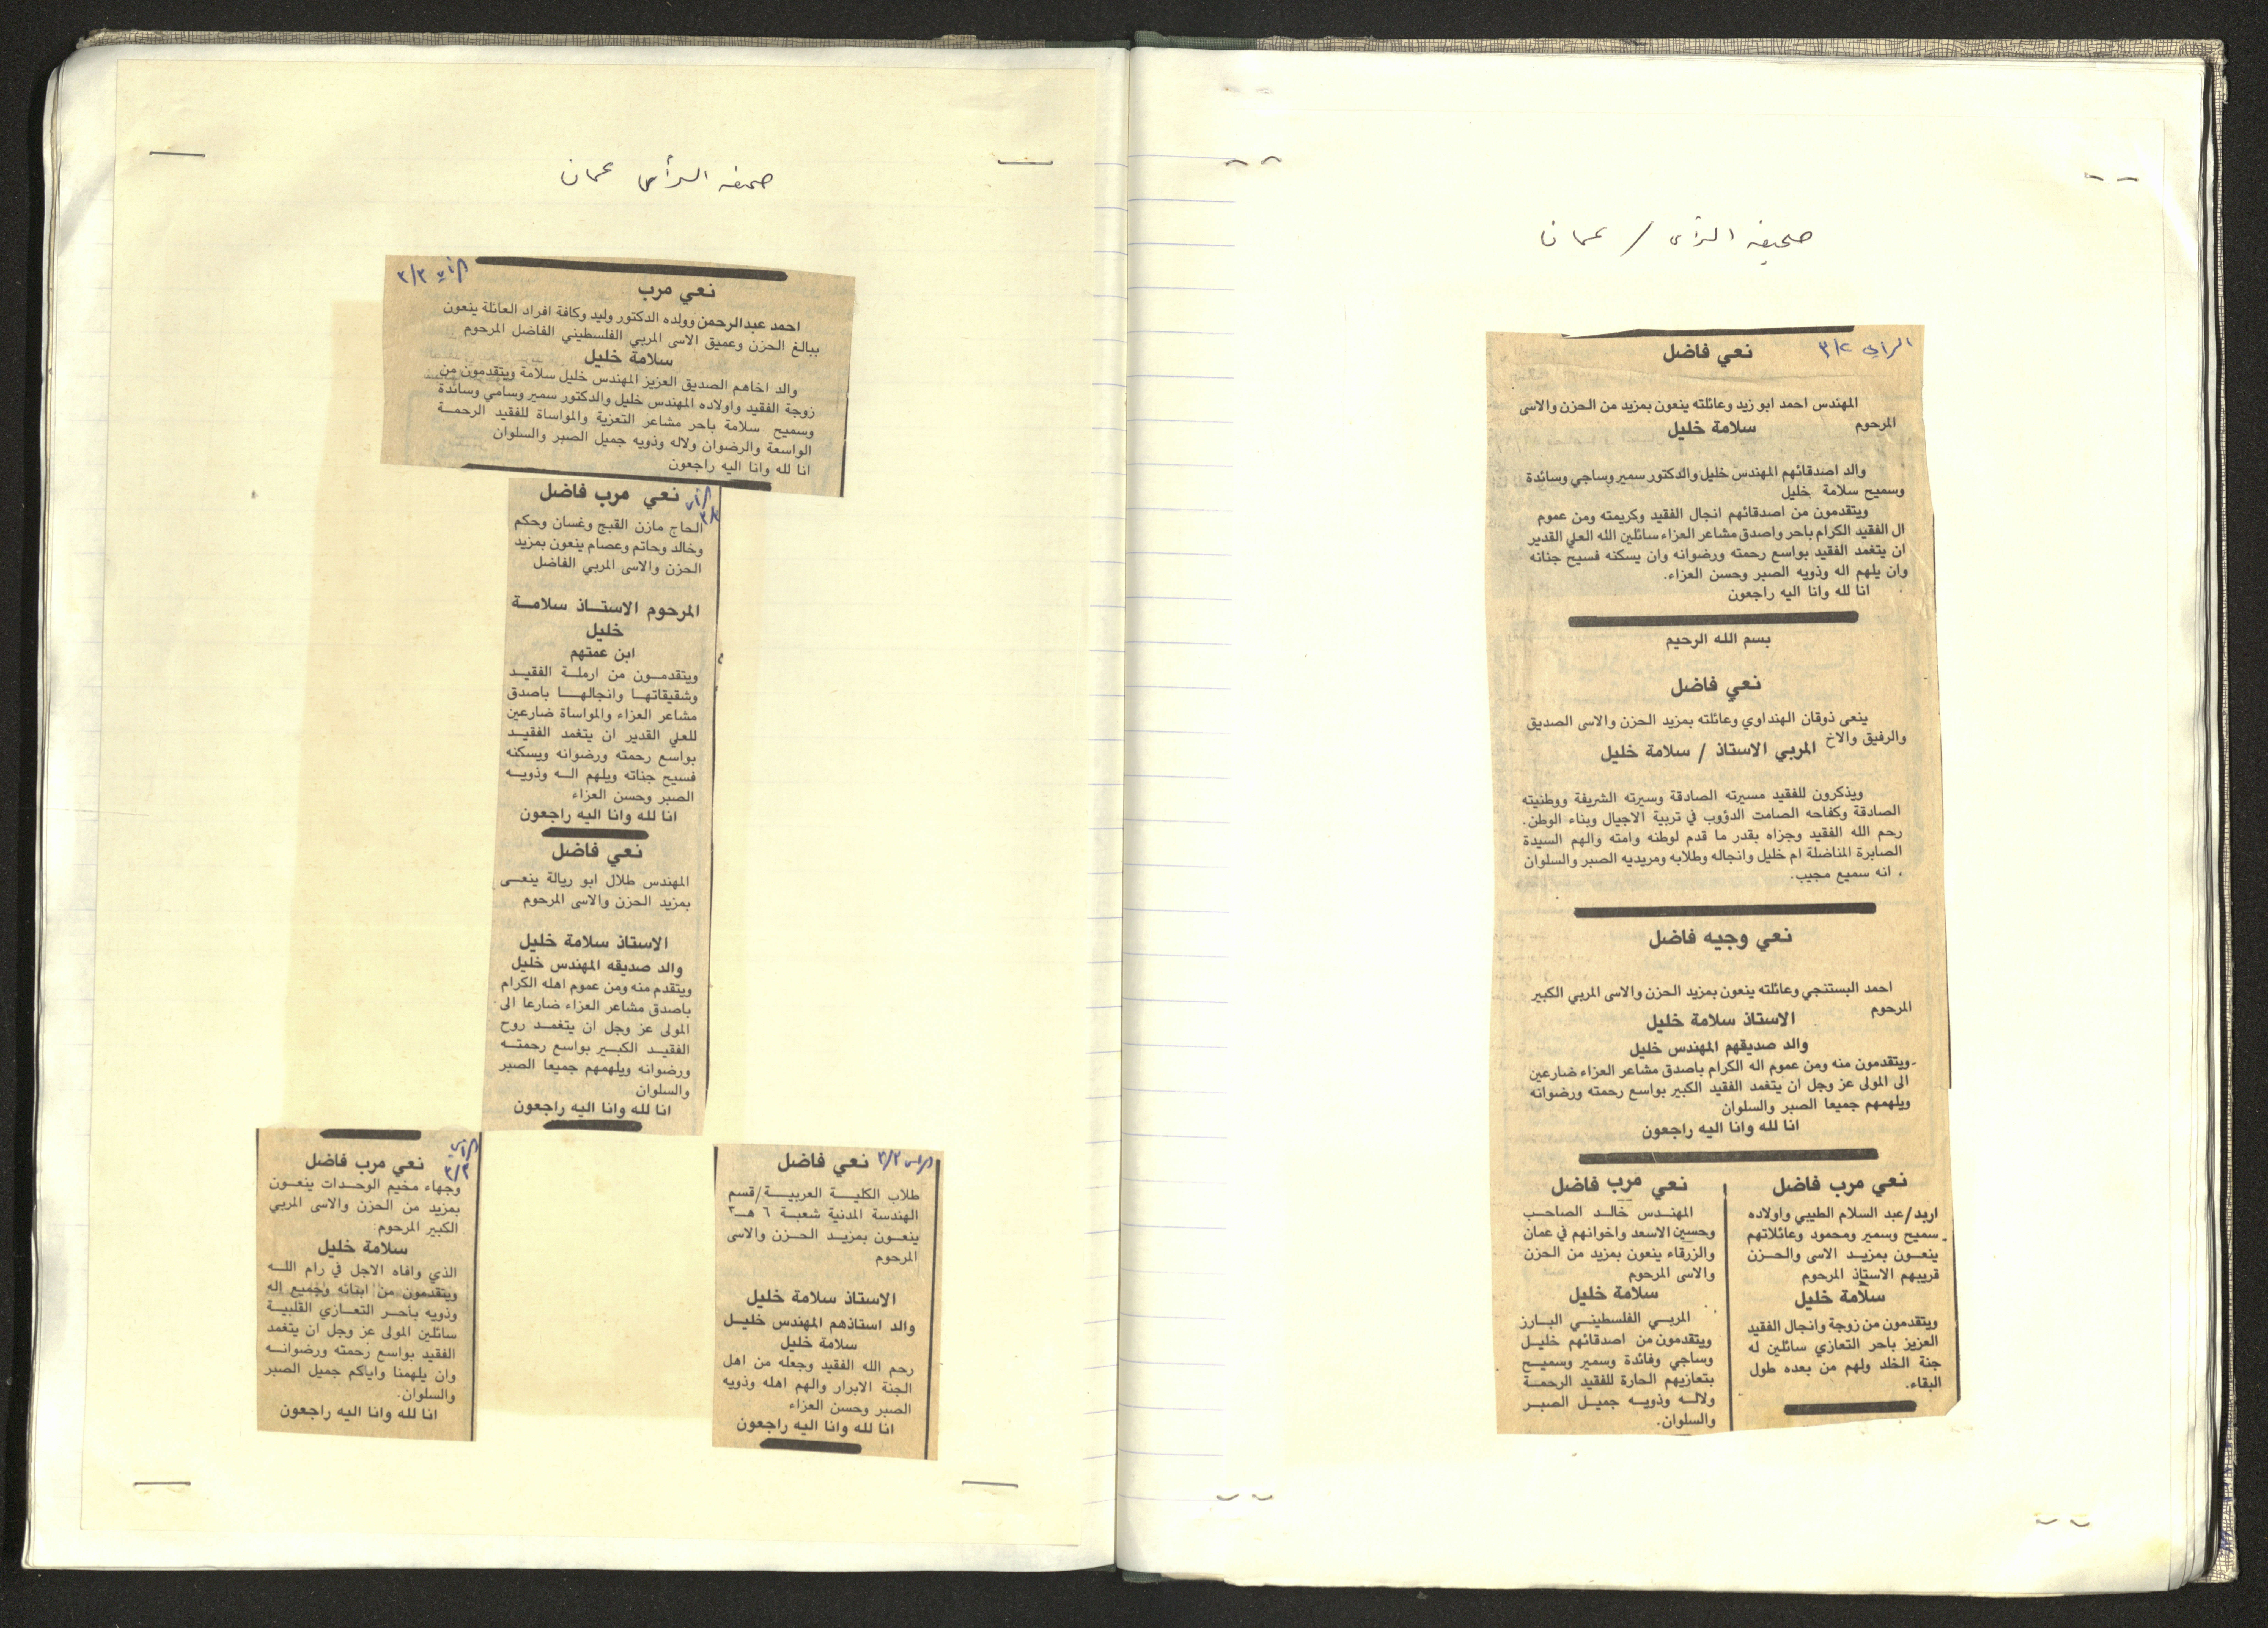 صحيفه الرأي / عمان
الرأي ٣/٢
نعي فاضل
المهندس احمد ابو زيد وعائلته ينعون بمزيد من الحزن والاسى
المرحوم
سلامة خليل
والد اصدقائهم المهندس خليل والدكتور سمير وساجي وسائدة
وسميح سلامة خليل
ويتقدمون من اصدقائهم انجال الفقيد وكريمته ومن عموم
ال الفقيد الكرام باحر واصدق مشاعر العزاء سائلين الله العلي القدير
ان يتغمد الفقيد بواسع رحمته ورضوانه وان يسكنه فسيح جنانه
وان يلهم اله وذويه الصبر وحسن العزاء.
انا لله وانا اليه راجعون
بسم الله الرحيم
نعي فاضل
ينعى ذوقان الهنداوي وعائلته بمزيد الحزن والاسى الصديق
والرفيق والاخ المربي الاستاذ / سلامة خليل
ويذكرون للفقيد مسيرته الصادقة وسيرته الشريفة ووطنيته
الصادقة وكفاحه الصامت الدؤوب في تربية الاجيال وبناء الوطن.
رحم الله الفقيد وجزاه بقدر ما قدم لوطنه وامته والهم السيدة
الصابرة المناضلة ام خليل وانجاله وطلابه ومريديه الصبر والسلوان
انه سميع مجيب.
نعي وجيه فاضل
احمد البستنجي وعائلته ينعون بمزيد الحزن والاسى المربي الكبير
المرحوم
الاستاذ سلامة خليل
والد صديقهم المهندس خليل
ويتقدمون منه ومن عموم اله الكرام باصدق مشاعر العزاء ضارعين
الى المولى عز وجل ان يتغمد الفقيد الكبير بواسع رحمته ورضوانه
ويلهمهم جميعا الصبر والسلوان
انا لله وانا اليه راجعون
نعي مرب فاضل
اربد/عبد السلام الطيبي واولاده
سميح وسمير ومحمود وعائلاتهم
ينعون بمزيد الاسى والحزن
قريبهم الاستاذ المرحوم
سلامة خليل
ويتقدمون من زوجة وانجال الفقيد
العزيز باحر التعازي سائلين له
جنة الخلد ولهم من بعده طول
البقاء.
نعي مرب فاضل
المهندس خالد الصاحب
وحسين الاسعد واخوانهم في عمان
والزرقاء ينعون بمزيد من الحزن
والاسى المرحوم
سلامة خليل
المربي الفلسطيني البارز
ويتقدمون من اصدقائهم خليل
وساجي وفائدة وسمير وسميح
بتعازيهم الحارة للفقيد الرحمة
ولاله وذويه جميل الصبر
والسلوان.
صحيفه الرأي عمان
الرأي ٣/٣
نعي مرب
احمد عبدالرحمن وولده الدكتور وليد وكافة افراد العائلة ينعون
ببالغ الحزن وعميق الاسى المربي الفلسطيني الفاضل المرحوم
سلامة خليل
والد اخاهم الصديق العزيز المهندس خليل سلامة ويتقدمون من
زوجة الفقيد واولاده المهندس خليل والدكتور سمير وسامي وسائدة
وسميح سلامة باحر مشاعر التعزية والمواساة للفقيد الرحمة
الواسعة والرضوان ولاله وذويه جميل الصبر والسلوان
انا لله وانا اليه راجعون
الرأي
نعي مرب فاضل
الحاج مازن القبج وغسان وحكم
وخالد وحاتم وعصام ينعون بمزيد
الحزن والاسى المربي الفاضل
المرحوم الاستاذ سلامة
خليل
ابن عمتهم
ويتقدمون من ارملة الفقيد
وشقيقاتها وانجالها باصدق
مشاعر العزاء والمواساة ضارعين
للعلي القدير ان يتغمد الفقيد
بواسع رحمته ورضوانه ويسكنه
فسيح جناته ويلهم اله وذويه
الصبر وحسن العزاء
انا لله وانا اليه راجعون
نعي فاضل
المهندس طلال ابو ريالة ينعى
بمزيد الحزن والاسى المرحوم
الاستاذ سلامة خليل
والد صديقه المهندس خليل
ويتقدم منه ومن عموم اهله الكرام
باصدق مشاعر العزاء ضارعا الى
المولى عز وجل ان يتغمد روح
الفقيد الكبير بواسع رحمته
ورضوانه ويلهمهم جميعا الصبر
والسلوان
انا لله وانا اليه راجعون
الرأي ٣/٢
نعي فاضل
طلاب الكلية العربية/قسم
الهندسة المدنية شعبة ٦ هـ٣
ينعون بمزيد الحزن والاسى
المرحوم
الاستاذ سلامة خليل
والد استاذهم المهندس خليل
سلامة خليل
رحم الله الفقيد وجعله من اهل
الجنة الابرار والهم اهله وذويه
الصبر وحسن العزاء
انا لله وانا اليه راجعون
الرأي
٣/٣
نعي مرب فاضل
وجهاء مخيم الوحدات ينعون
بمزيد من الحزن والاسى المربي
الكبير المرحوم:
سلامة خليل
الذي وافاه الاجل في رام الله
ويتقدمون من ابنائه وجميع اله
وذويه بأحر التعازي القلبية
سائلين المولى عز وجل ان يتغمد
الفقيد بواسع رحمته ورضوانه
وان يلهمنا واياكم جميل الصبر
والسلوان.
انا لله وانا اليه راجعون